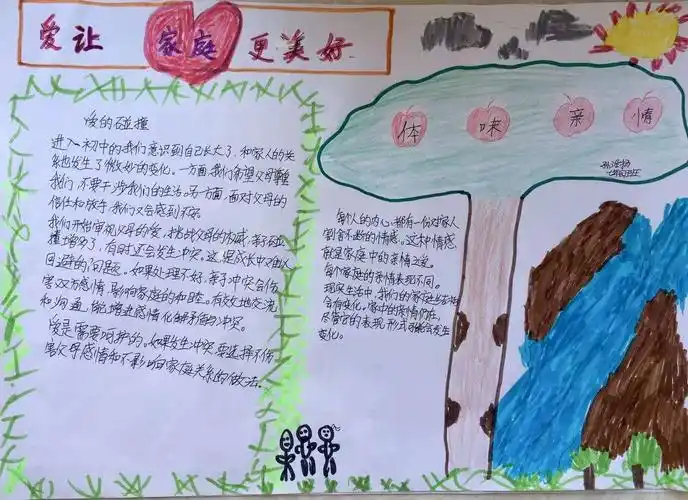 爱让 家庭 更美好
爱的碰撞
进入初中的我们意识到自己长大了,和家人的关
系也发生了微妙的变化。一方面,我们希望父母尊重
我们,不要干涉我们的生活。另一方面,面对父母的
信任和放手,我们又会感到不安。
我们开始审视父母的爱,挑战父母的权威,亲子碰
撞增多了,有时还会发生冲突。这是成长中难以
回避的问题。如果处理不好,亲子冲突会伤
害双方感情,影响家庭的和睦。有效地交流
和沟通,能增进感情,化解矛盾与冲突。
爱是需要呵护的。如果发生冲突,要选择不伤
害父母感情和不影响家庭关系的做法。
体 味 亲 情
每个人的内心,都有一份对家人
割舍不断的情感。这种情感
就是家庭中的亲情之爱。
每个家庭的亲情表现不同。
现实生活中,我们的家庭结构
会有变化。家中的亲情仍在,
尽管它的表现形式可能会发生
变化。